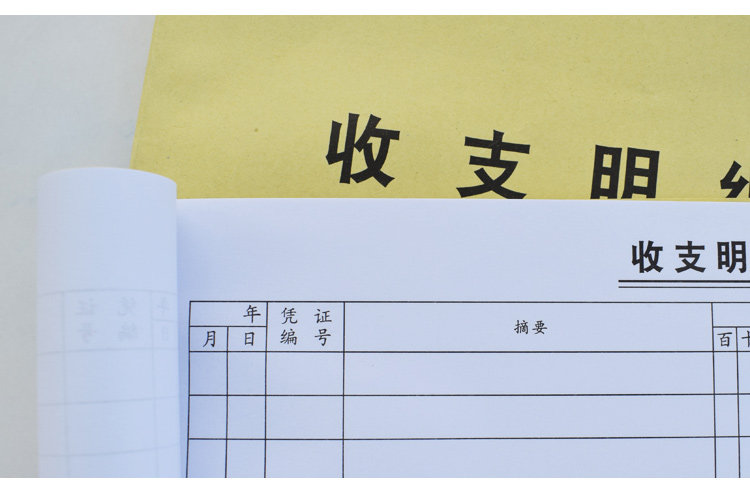 收支明
收支明
年 凭证 摘要
月 日 编号 百